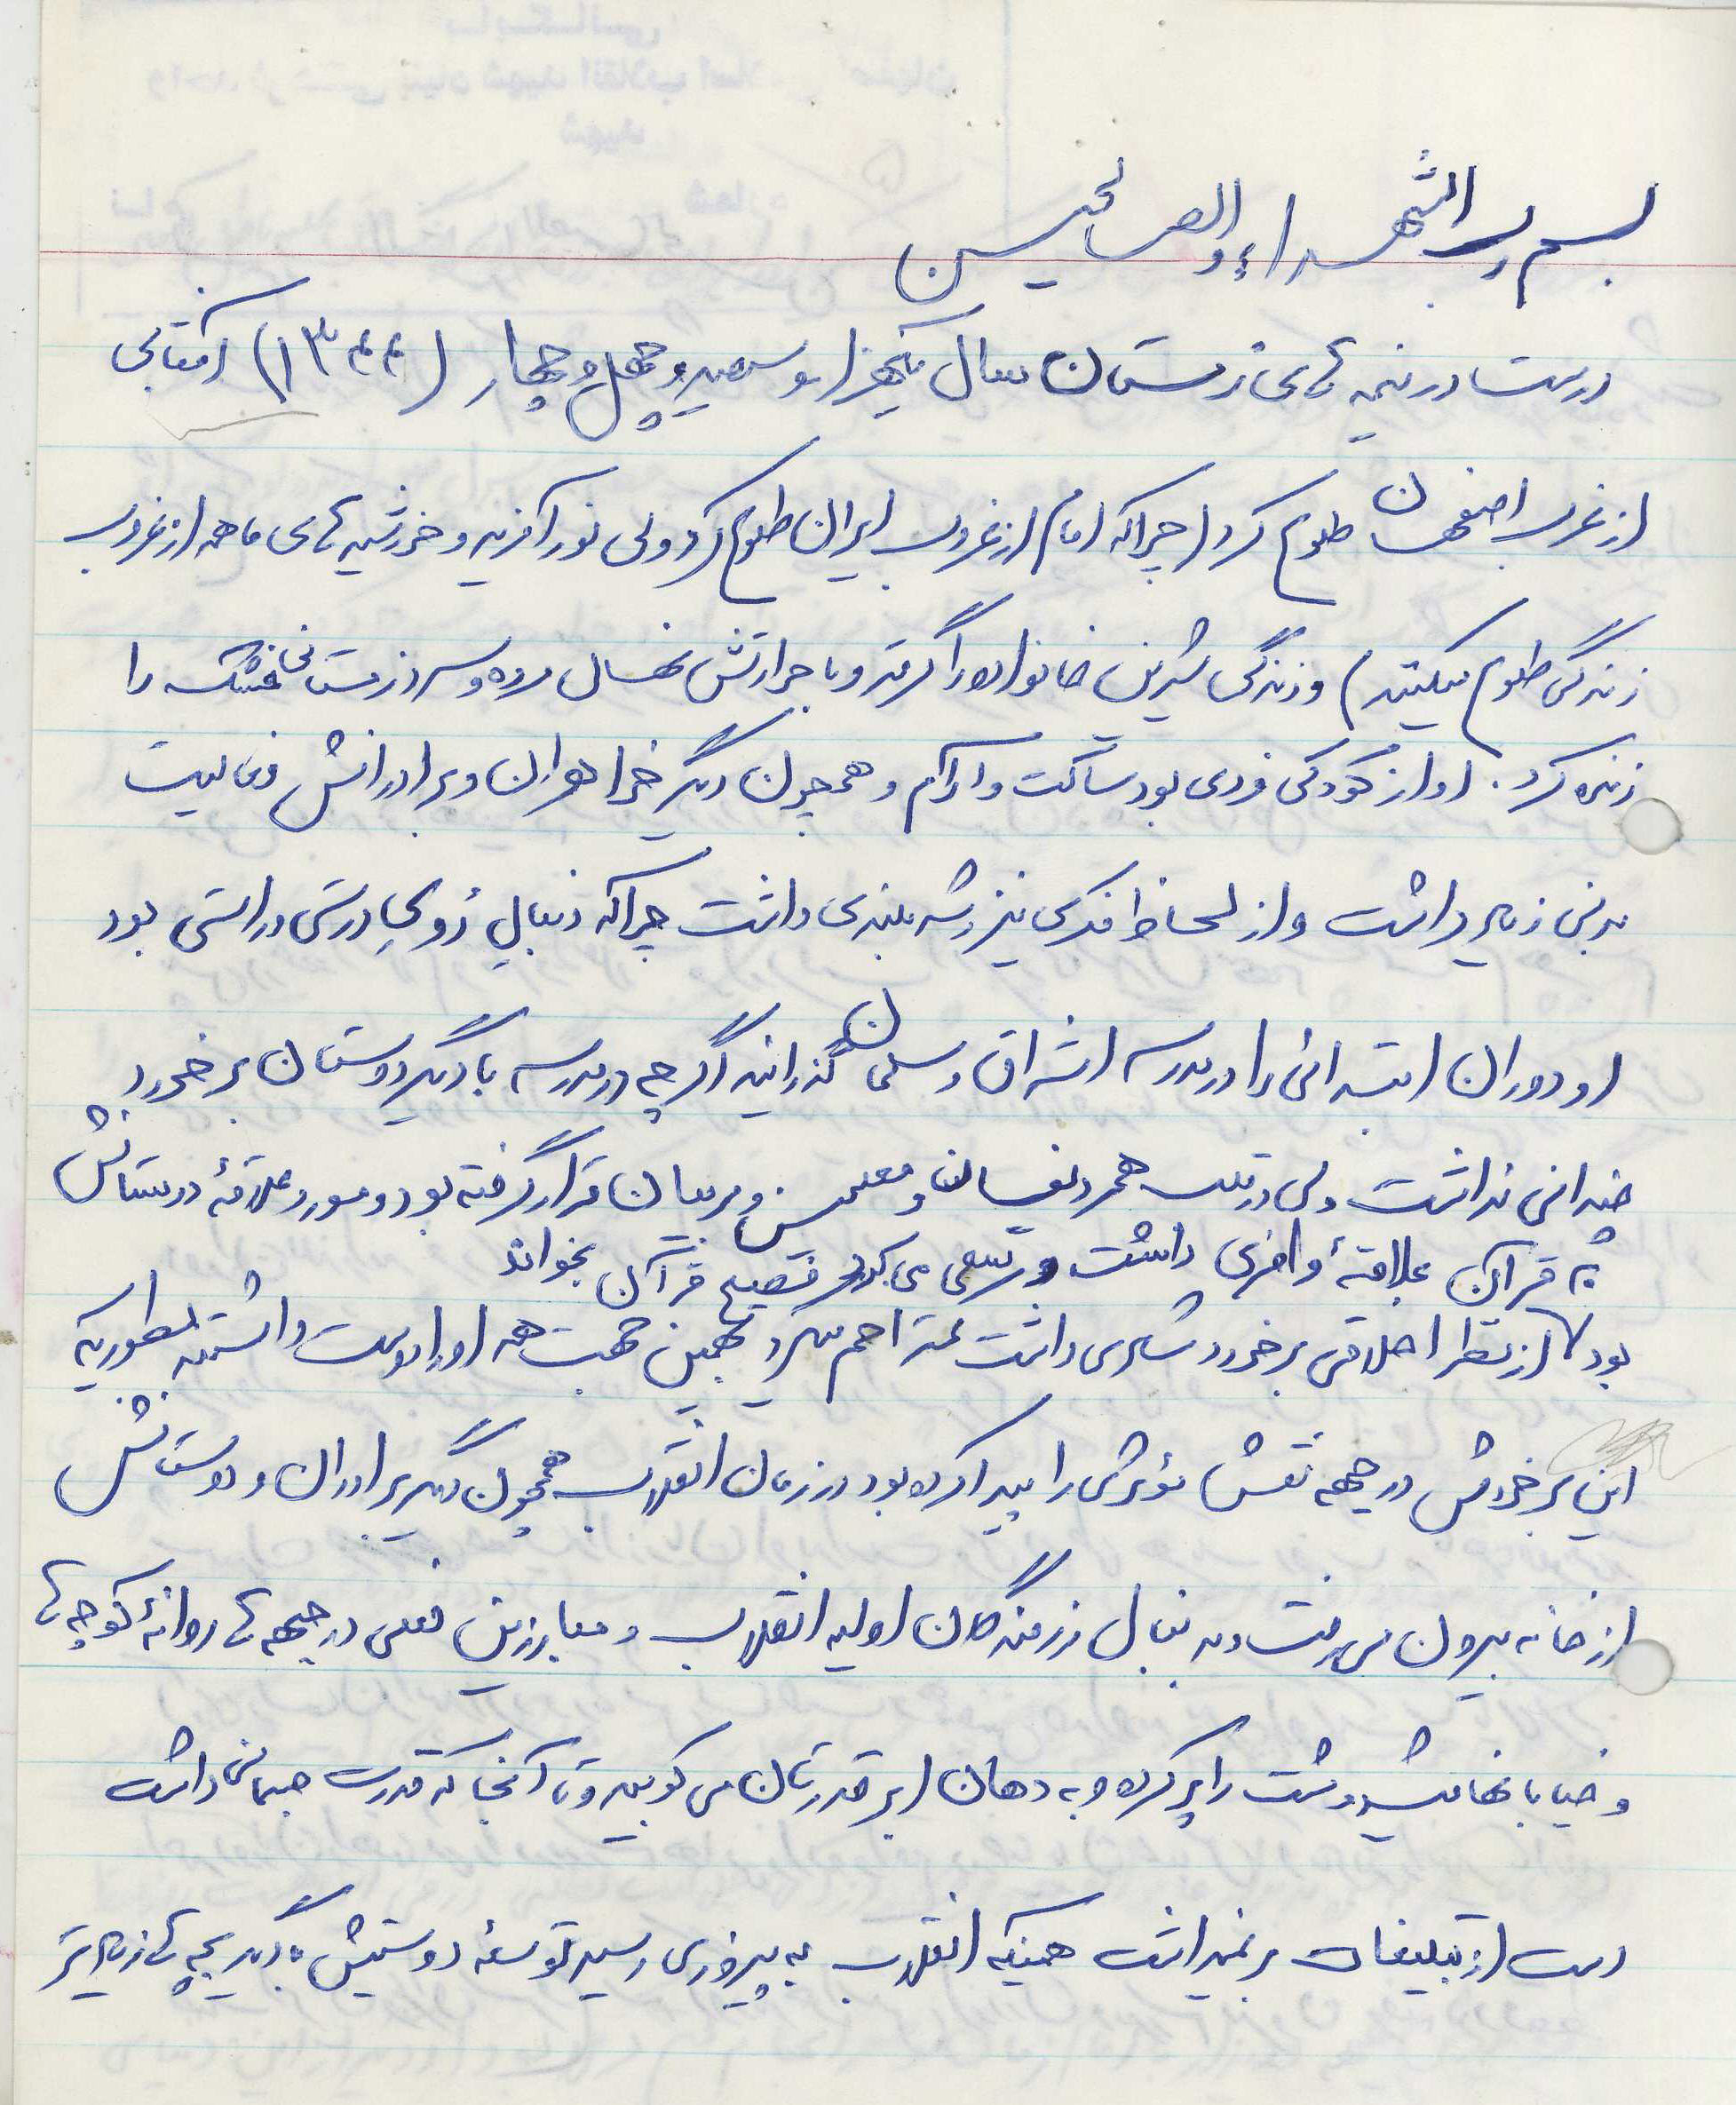 بسم رب الشهداء والصالحین
درست در نیمه های زمستان سال یکهزار و سیصد و چهل و چهار (۱۳۴۴) آفتابی
از غرب اصفهان طلوع کرد (چرا که امام از غروب ایران طلوع کرد ولی نور آفرید و خورشیدهای ما همه از غروب
زندگی طلوع میکنند) و زندگی شیرین خانواده را گرمتر و با حرارتش نهال مرده و سرد زمستانی خشک را
زنده کرد. او از کودکی فردی بود ساکت و آرام و همچون دیگر خواهران و برادرانش فعالیت
بدنی زیاد داشت و از لحاظ فکری نیز رشد بلندی داشت چرا که دنبال درستی و راستی بود
او دوران ابتدائی را در مدرسه اشراق و سلمان گذرانید اگر چه در مدرسه با دیگر دوستان برخورد
چندانی نداشت ولی در قلب همردیفیان و معلمین و مربیان قرار گرفته بود و مورد علاقهٔ دوستانش
به قرآن علاقهٔ وافری داشت و سعی می کرد فصیح قرآن بخواند
بود از نظر اخلاقی برخورد شادی داشت به همین جهت همه او را دوست داشتند بطوریکه
این برخوردش در جبهه نقش مؤثرش را پیدا کرده بود در زمان انقلاب همچون دیگر برادران و دوستانش
از خانه بیرون می رفت و به دنبال رزمندگان اولیه انقلاب و مبارزین فعلی در جبهه ها روانهٔ کوچه ها
و خیابانها میشد و مشت را پر کرده و به دهان ابرقدرتان می کوبید و تا آنجا که قدرت جسمانی داشت
دست از تبلیغات بر نمیداشت همینکه انقلاب به پیروزی رسید توسعهٔ دوستیش با دیگر بچه ها زیادتر